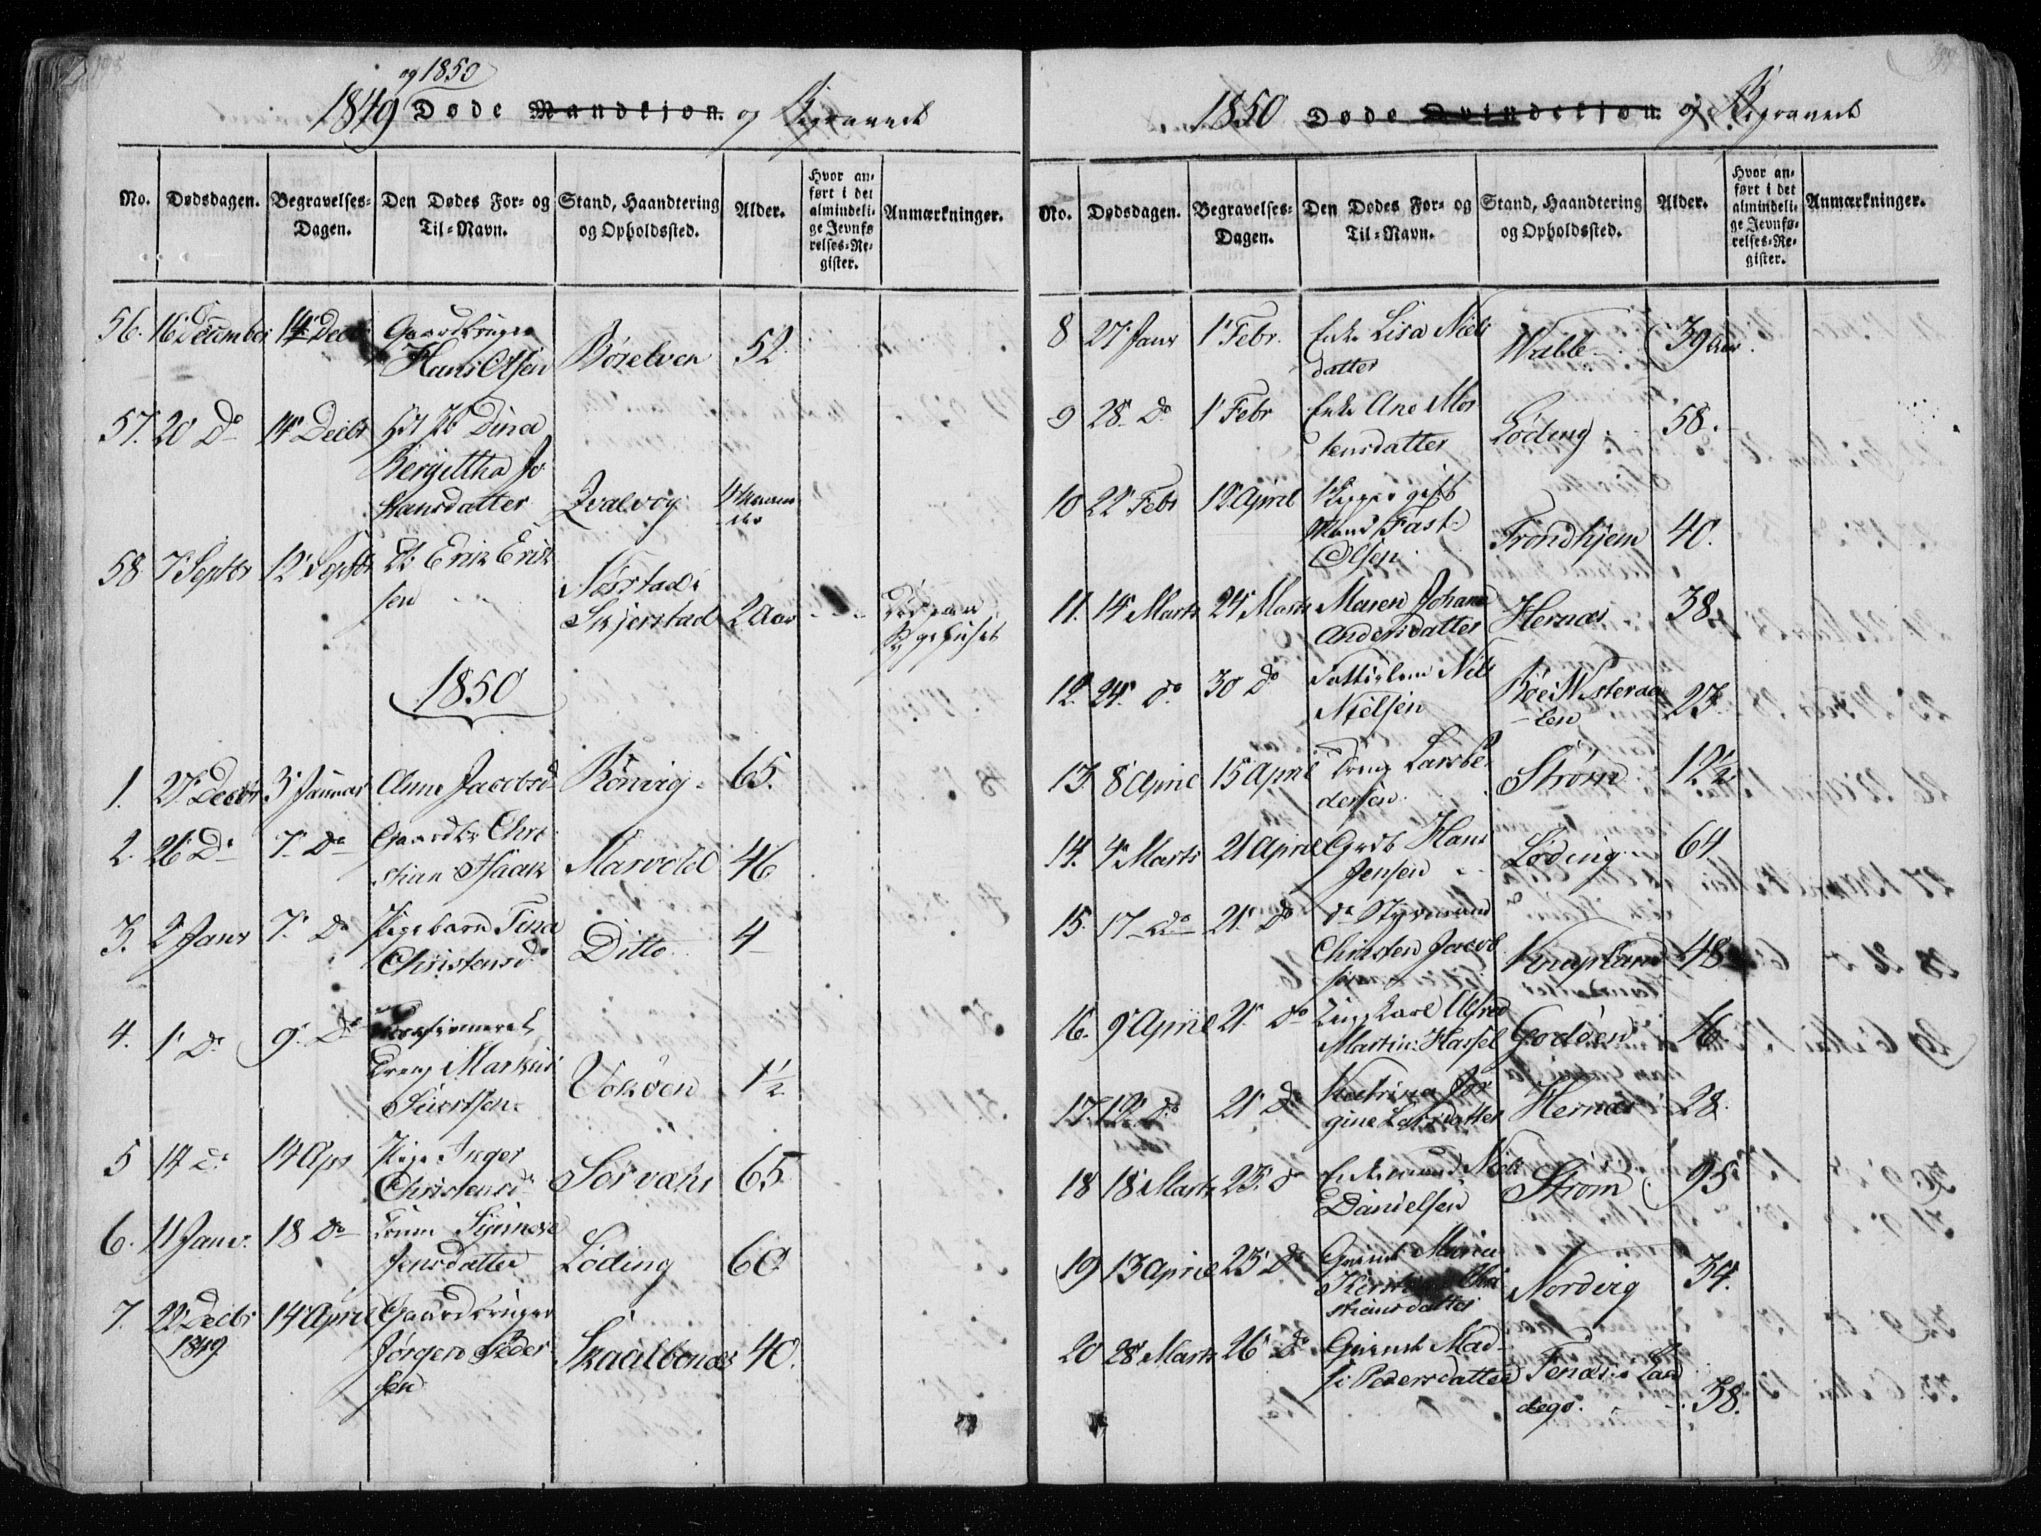 og 1850
1849 Døde Mandkjøn. og Begravede
No. Dødsdagen. Begravelses-Dagen. Den Dødes For- og Til-Navn. Stand, Haandtering og Opholdssted. Alder. Hvor anført i det almindelige Jevnførelses-Register. Anmærkninger.
56. 16 December 14 Decbr Gaardbruger
Hans Olsen Børelven 52
57. 20 Do 14 Decbr Dina
Bergittha Jo
hansdatter Qvalvog 4 Maane
der
58 7 Septbr 12 Septbr Erik Erik
sen Næstad i
Skjerstad 2 Aar
1850
1. 27 Decbr 3 Januar Anne Jacobsd Rønvig 65.
2. 26 Do 7 Do Gaardbr Chri
stian Isaak Marvold 46
3. 2 Janr 7 Do Pigebarn Tina
Christensd Ditto 4
4. 1 Do 9 Do
Dreng Markus
Siversen Vokøen 1½
5 14 do 14 Apr Pige Inger
Christensd Sørvaag 65
6. 11 Janr. 18 Do
Jensdatter Løding 60
7. 22 Decbr
1849 14 April Gaardbruger
Jørgen Peder
sen Skaalbonæs 40.
1850 Døde Qvindekjøn. og Begravede
No. Dødsdagen. Begravelses-Dagen. Den Dødes For- og Til-Navn. Stand, Haandtering og Opholdssted. Alder. Hvor anført i det almindelige Jevnførelses-Register. Anmærkninger.
8 27 Janr 1 Febr. Enke Lisa Niels
datter Valle 39 Aar
9 28 Do 1 Febr Enke Ane Mor
tensdatter Løding 58.
10 22 Febr 12 April gift
Mand Fast
Olsen Trondhjem 40.
11. 14 Marts 24 Marts Maren Johana
Andersdatter Hernæs 38
12. 24. do 30 Do Nils
Nielsen Bøe i Westeraa
len 27.
13. 8 April 15 April Dreng Lars Pe
dersen Strøm 12½
14. 4 Marts 21 April Grdb Hans
Jensen Løding 64
15. 17 do 21. Do do Styrmand
Christen Jacob
sen 48
16. 9 April 21. Do Ungkarl Alfred
Martin Hassel Godøen 16
17. 12. do 21 Do Katrina Jør
gine Larsdatter Hernæs 28.
18 18 Marts 23. do Enkemand Niels
Danielsen Strøm 95
19 13 April 23 Do Qvinde Maria
Kirstine Chri
stiansdatter Nordvig 34.
20 28 Marts 26 Do Qvinde Mad
si Pedersdatter Fenæs i Lan
dego. 38.